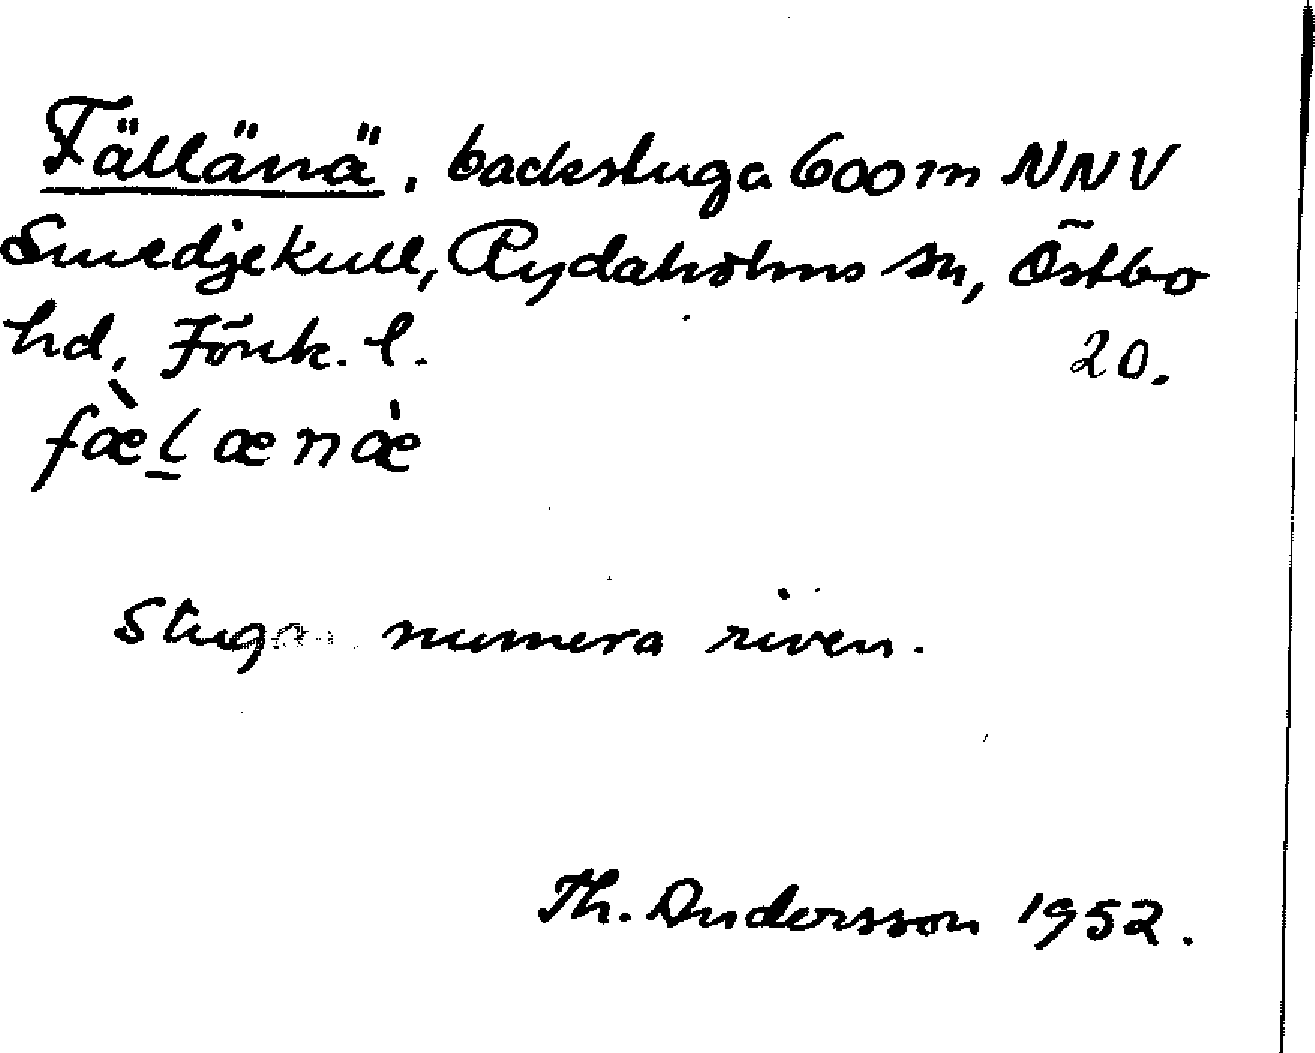 Fällänä, backstuga 600 m NNV
Smedjekull, Rydaholms sn, Östbo
hd, Jönk. l. 20.
fæ̀l̲ænæ̀
Stugan numera riven.
Th. Andersson 1952.